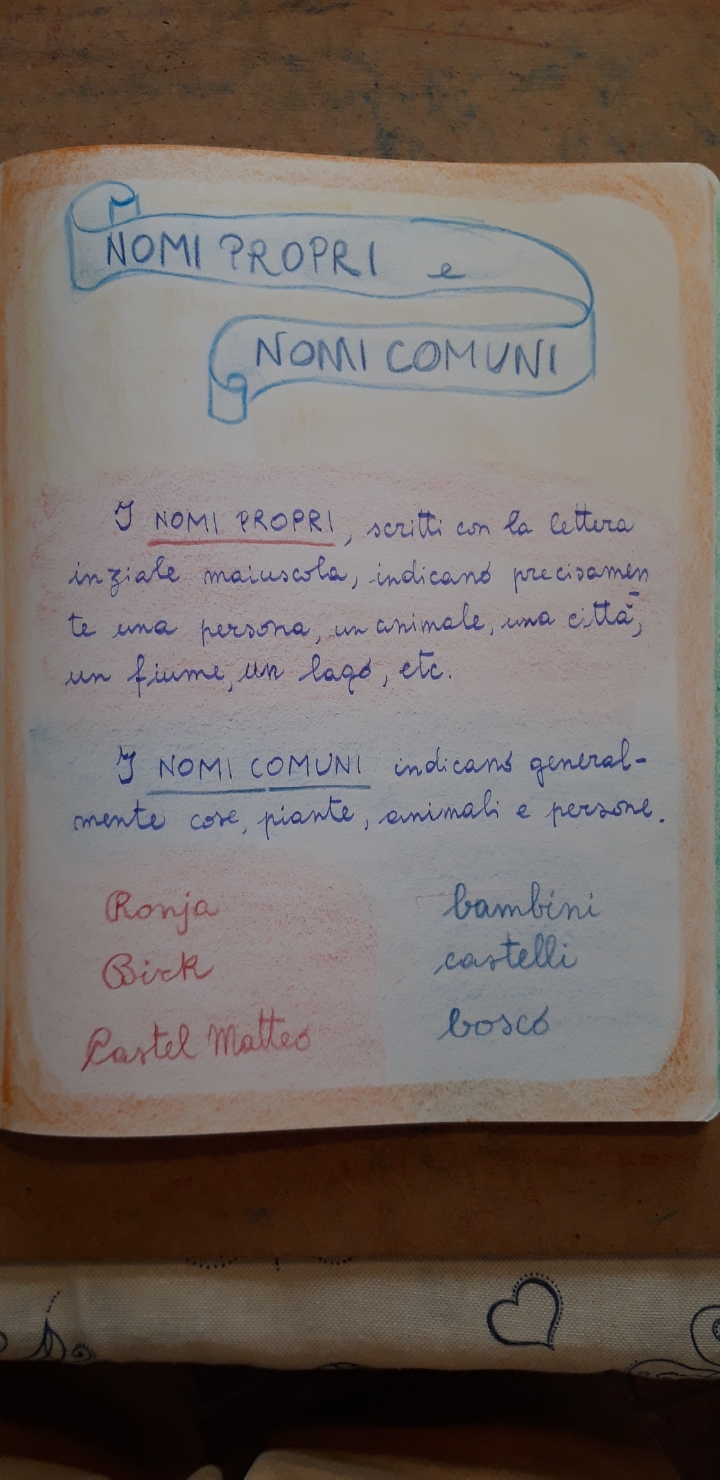 NOMI PROPRI e
NOMI COMUNI
I NOMI PROPRI, scritti con la lettera
inziale maiuscola, indicano precisamen
te una persona, un animale, una città,
un fiume, un lago, etc.
I NOMI COMUNI indicano general-
mente cose, piante, animali e persone.
Ronja bambini
Birk castelli
Castel Matteo bosco